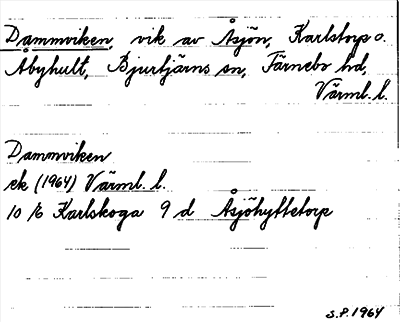 Dammviken, vik av Åsjön, Karlstorp o.
Åbyhult, Bjurtjärns sn, Färnebo hd,
Värml. l.
Dammviken
ek (1964) Värml. l.
10 /6 Karlskoga 9 d Åsjöhyttetorp
S.P. 1964